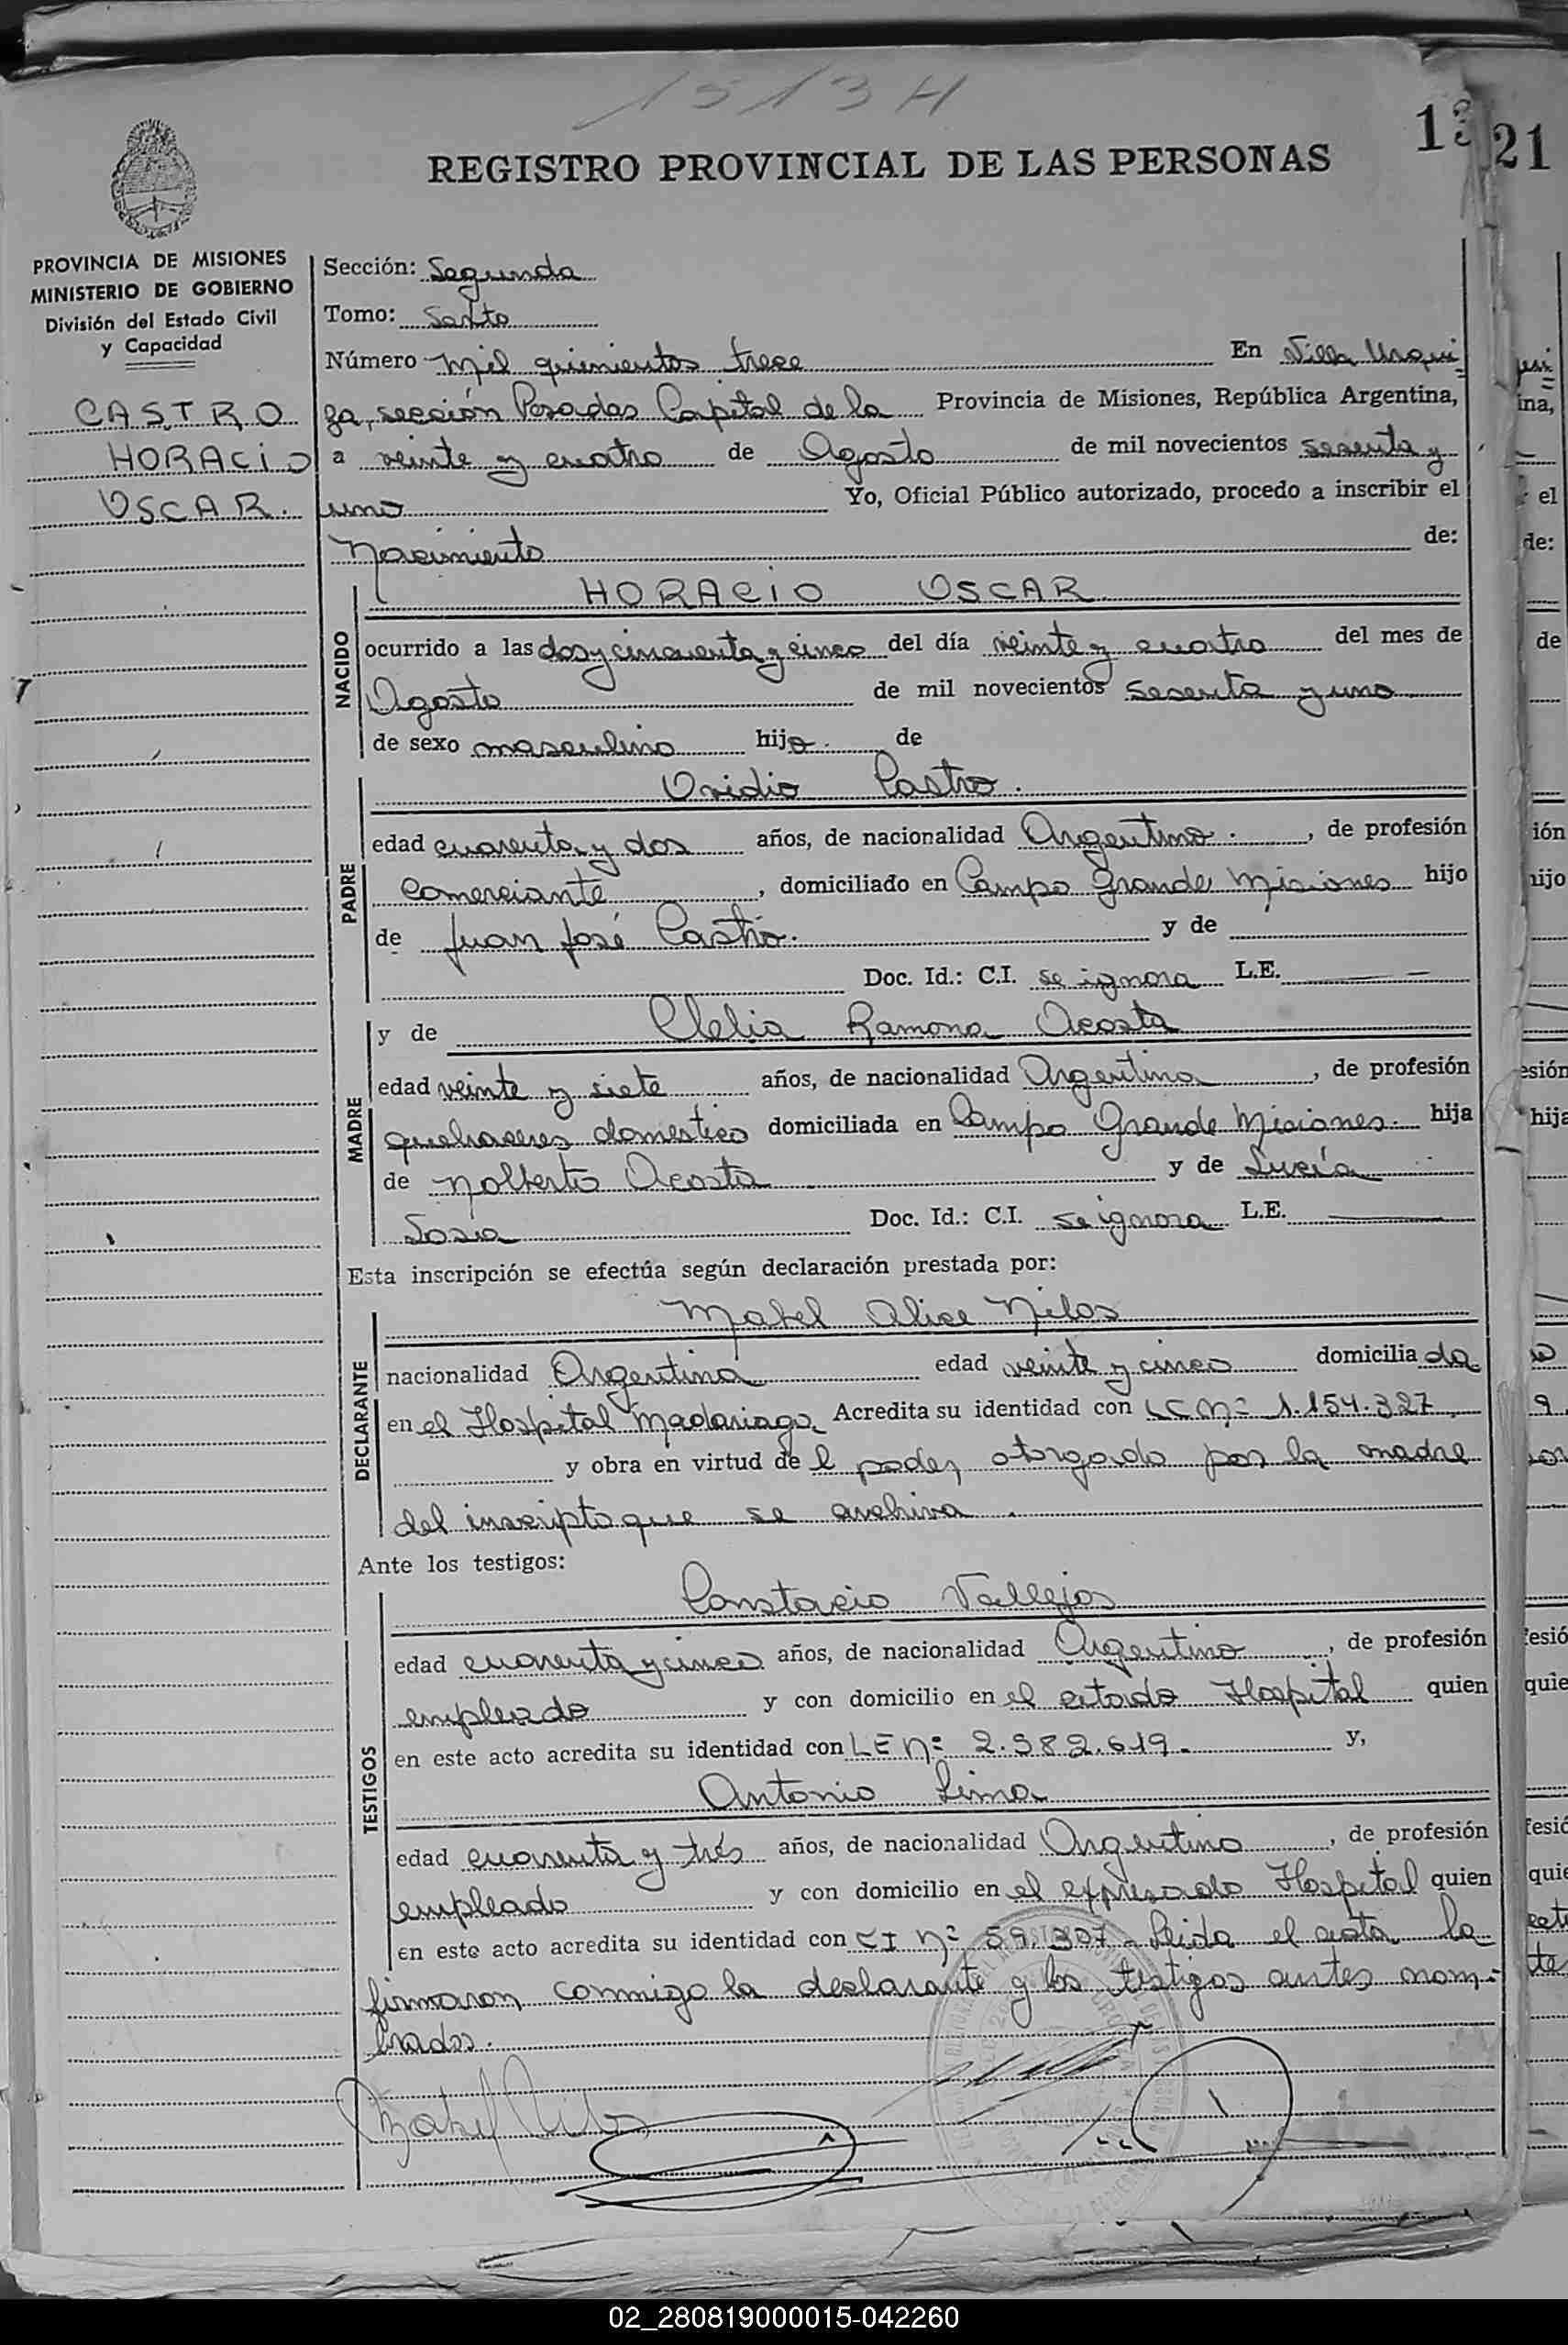 1513 H
13
21
REGISTRO PROVINCIAL DE LAS PERSONAS
PROVINCIA DE MISIONES
MINISTERIO DE GOBIERNO
División del Estado Civil
y Capacidad
CASTRO
HORACIO
OSCAR.
Sección: Segunda
Tomo: Sexto
Número mil quinientos trece En Villa Urqui
za, sección Posadas Capital de la Provincia de Misiones, República Argentina,
a veinte y cuatro de Agosto de mil novecientos sesenta y
uno Yo, Oficial Público autorizado, procedo a inscribir el
Nacimiento de:
NACIDO
HORACIO OSCAR
ocurrido a las dos y cincuenta y cinco del día veinte y cuatro del mes de
Agosto de mil novecientos sesenta y uno
de sexo masculino hijo. de
PADRE
Ovidio Castro.
edad cuarenta y dos años, de nacionalidad Argentino., de profesión
comerciante, domiciliado en Campo Grande Misiones hijo
de Juan José Castro. y de
Doc. Id.: C.I. se ignora L.E.
MADRE
y de Clelia Ramona Acosta
edad veinte y siete años, de nacionalidad Argentina, de profesión
quehaceres domestico domiciliada en Campo Grande Misiones. hija
de Nolberto Acosta y de Lucía
Sosia Doc. Id.: C.I. se ignora L.E.
Esta inscripción se efectúa según declaración prestada por:
DECLARANTE
Mabel Alice Nilos
nacionalidad Argentina edad veinte y cinco domiciliada
en el Hospital Madariaga Acredita su identidad con LC Nº 1.154.327
y obra en virtud de l poder otorgado por la madre
del inscripto que se archiva.
Ante los testigos:
TESTIGOS
Constacio Vallejos
edad cuarenta y cinco años, de nacionalidad Argentino, de profesión
empleado y con domicilio en el citado Hospital quien
en este acto acredita su identidad con LE Nº 2.382.619. y,
Antonio Lima
edad cuarenta y trés años, de nacionalidad Argentino, de profesión
empleado y con domicilio en el expresado Hospital quien
en este acto acredita su identidad con CI Nº 59.307 - Leida el acta la
firmaron conmigo la declarante y los testigos antes nom-
brados.
Mabel Nilos
02_280819000015-042260